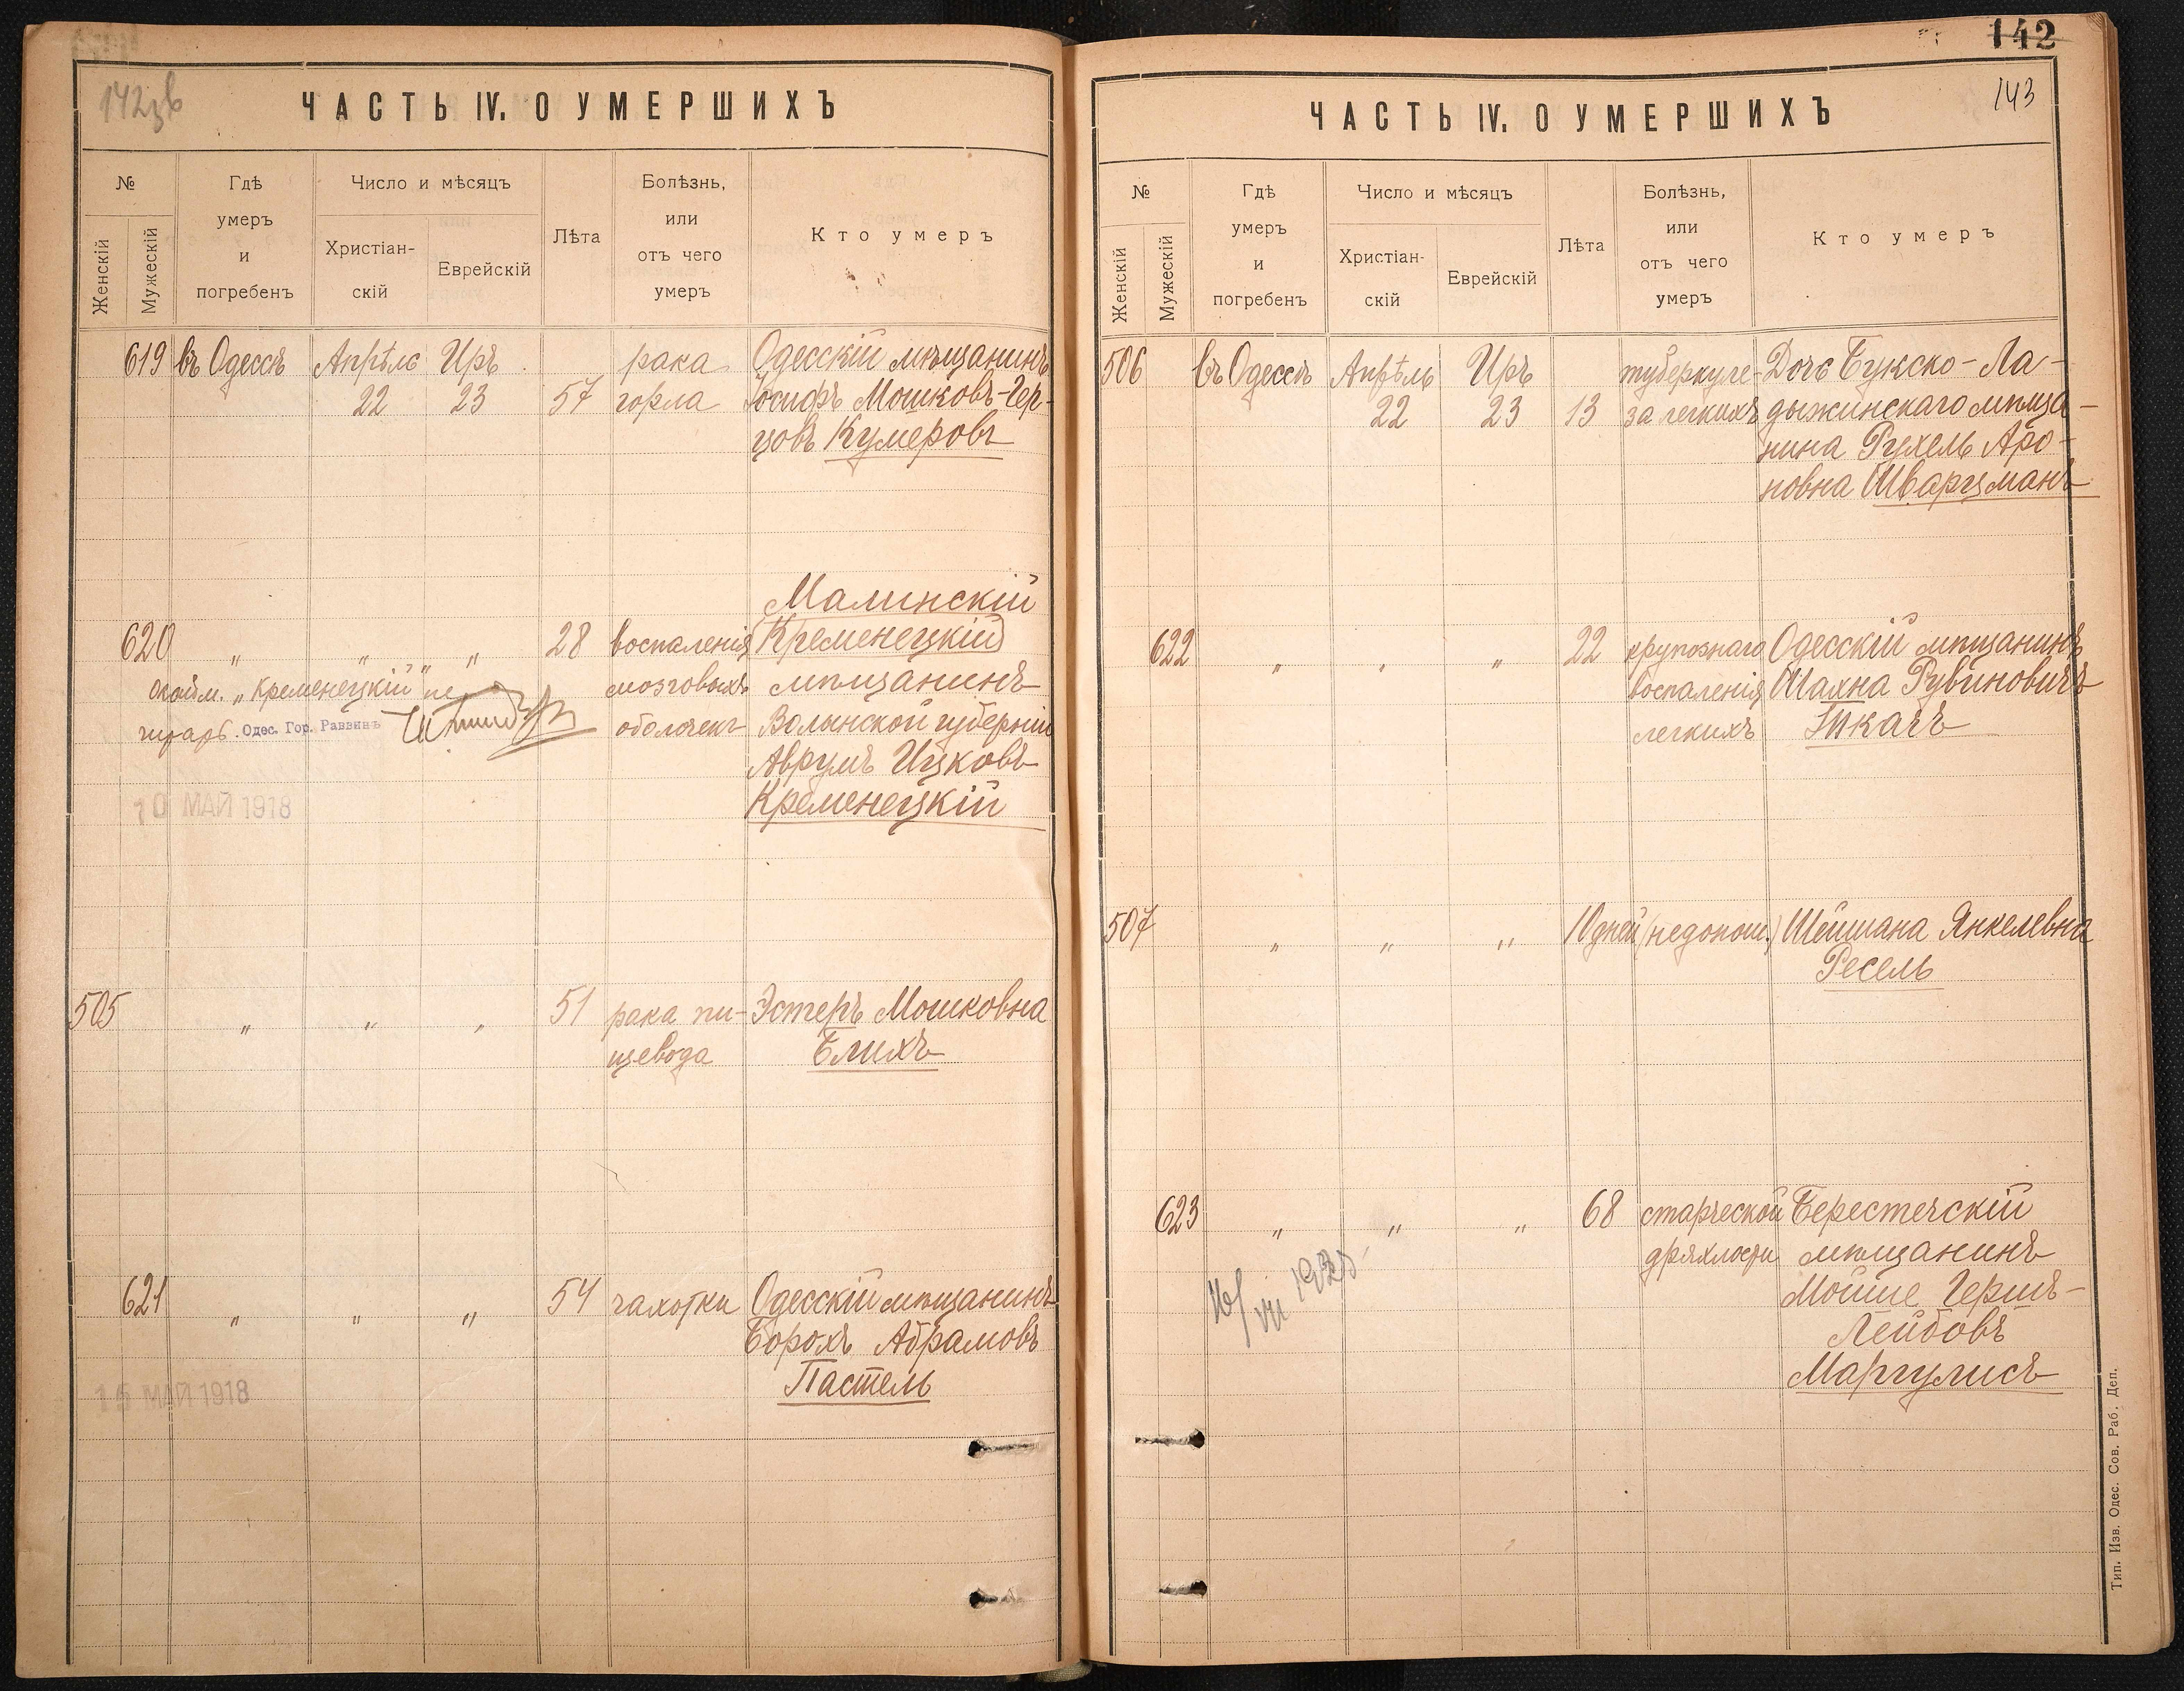 142зв
ЧАСТЬ IV. О УМЕРШИХЪ
№
Женскій
Мужескій
Гдѣ
умеръ
и
погребенъ
Число и мѣсяцъ
Христіан-
скій
Еврейскій
Лѣта
Болѣзнь,
или
отъ чего
умеръ
Кто умеръ
619 въ Одессѣ Апрѣль Иръ рака Одесскій мѣщанинъ
22 23 57 горла Іосифъ Мошковъ-Гер-
цовъ Кумеровъ
Малинскій
620 „ „ „ 28 воспаленія (Кременецкій)
мозговыхъ мѣщанинъ
оболочекъ Волынской губерніи
Аврумъ Ицковъ
Кременецкій
„Кременецкій" не
Одес. Гор. Раввинъ
10 МАЙ 1918
505 „ „ „ 51 рака пи- Эстеръ Мошковна
щевода Блихъ
621 „ „ „ 54 чахотки Одесскій мѣщанинъ
Борохъ Абрамовъ
Пастель
15 МАЙ 1918
142
143
ЧАСТЬ IV. О УМЕРШИХЪ
№
Женскій
Мужескій
Гдѣ
умеръ
и
погребенъ
Число и мѣсяцъ
Христіан-
скій
Еврейскій
Лѣта
Болѣзнь,
или
отъ чего
умеръ
Кто умеръ
506 въ Одессѣ Апрѣль Иръ туберкуле- Дочь Букско-Ла-
22 23 13 за легкихъ дыжинскаго мѣща-
нина Рухель Аро-
новна Шварцманъ
622 „ „ „ 22 крупознаго Одесскій мѣщанинъ
воспаленія Шахна Рувиновичъ
легкихъ Ткачъ
507 „ „ „ 10 дней (недонош.) Шейшана Янкелевна
Ресель
623 „ „ „ 68 старческой Берестечскій
дряхлости мѣщанинъ
Мойше Гершъ-
Лейбовъ
Маргулисъ
Тип. Изв. Одес. Сов. Раб. Деп.